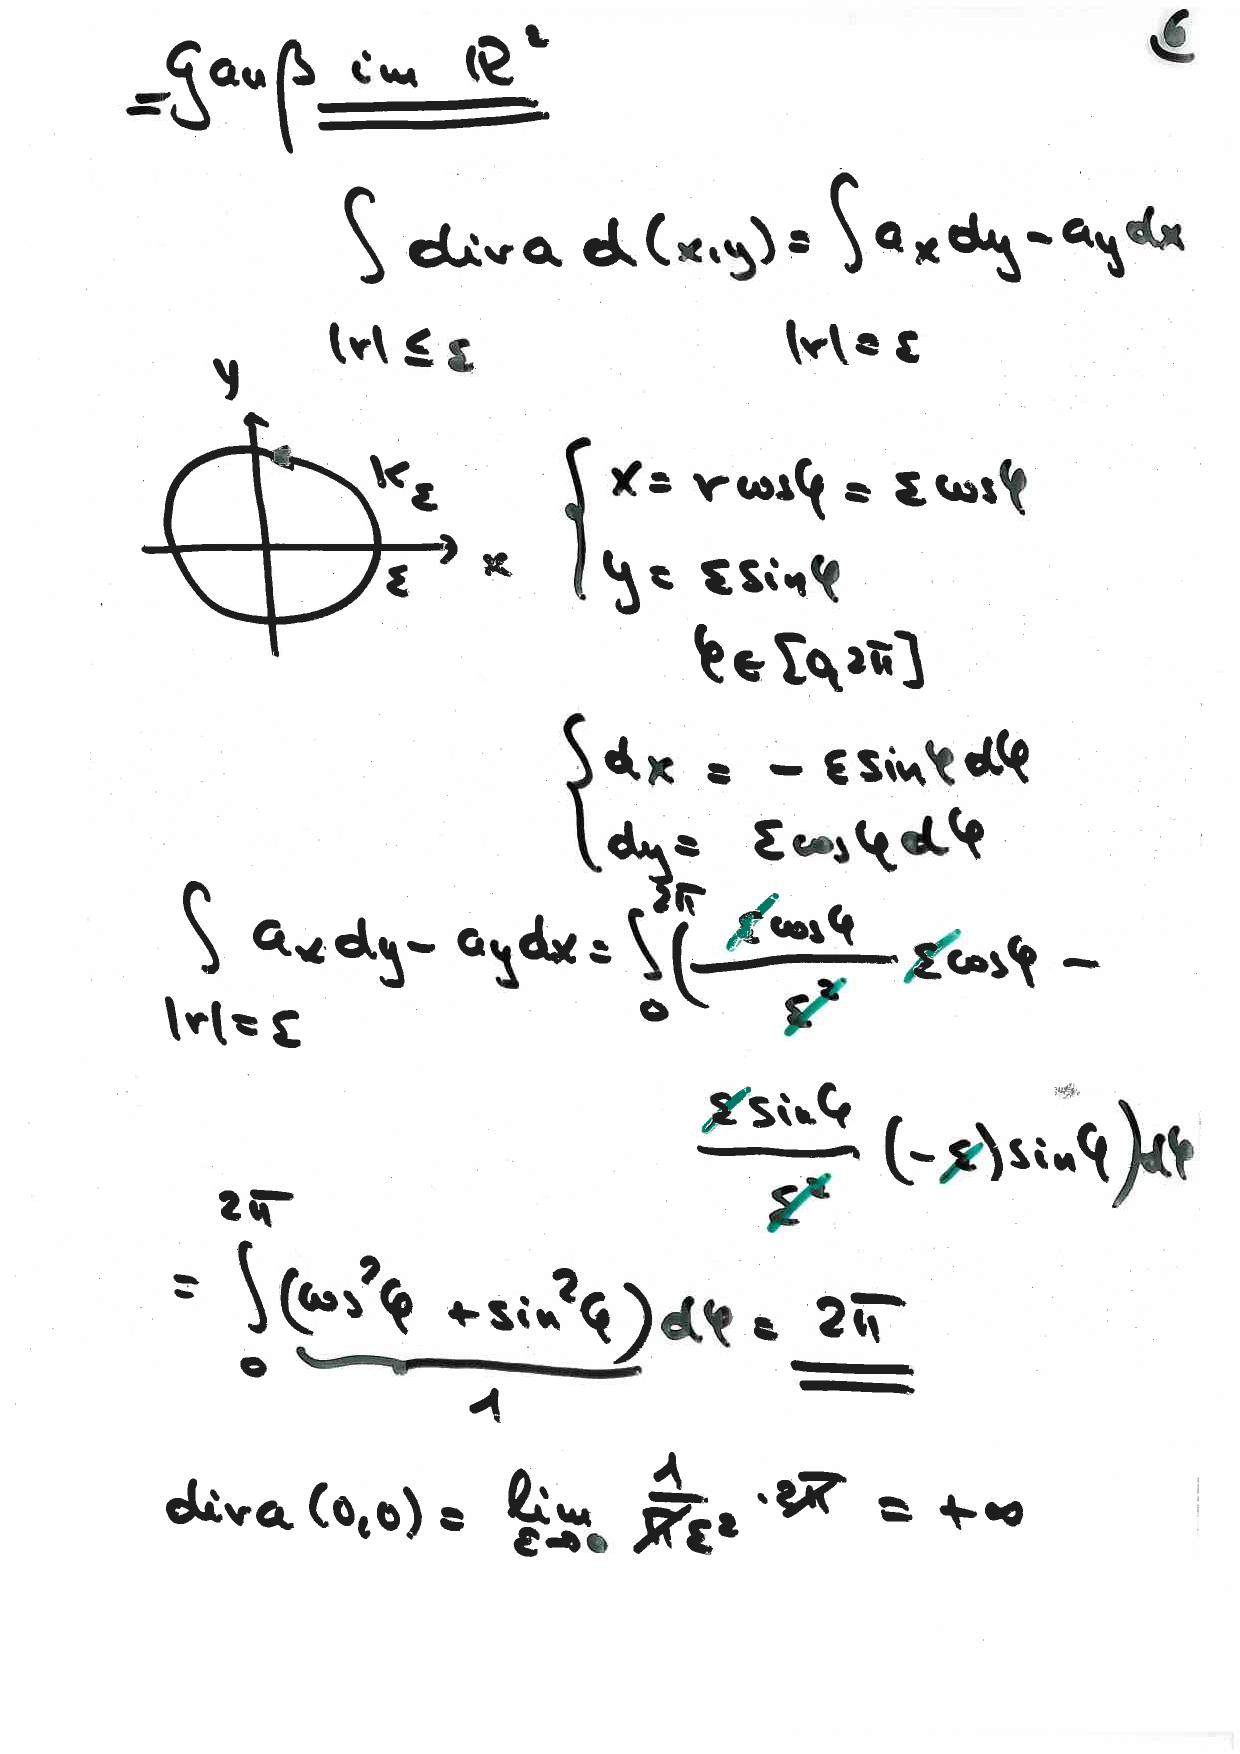 6
= Gauß im ℝ²
∫ div a d(x,y) = ∫ a_x dy - a_y dx
|r| ≤ ε |r| = ε
y
K_ε
ε x
{ x = r cosφ = ε cosφ
y = ε sinφ
φ ∈ [0,2π]
{ dx = - ε sinφ dφ
dy = ε cosφ dφ
∫_{|r|=ε} a_x dy - a_y dx = ∫_0^{2π} ( (ε cosφ)/(ε²) ε cosφ -
(ε sinφ)/(ε²) (-ε) sinφ ) dφ
= ∫_0^{2π} (cos²φ + sin²φ) dφ = 2π
1
div a (0,0) = lim_{ε→0} 1/(π ε²) · 2π = +∞